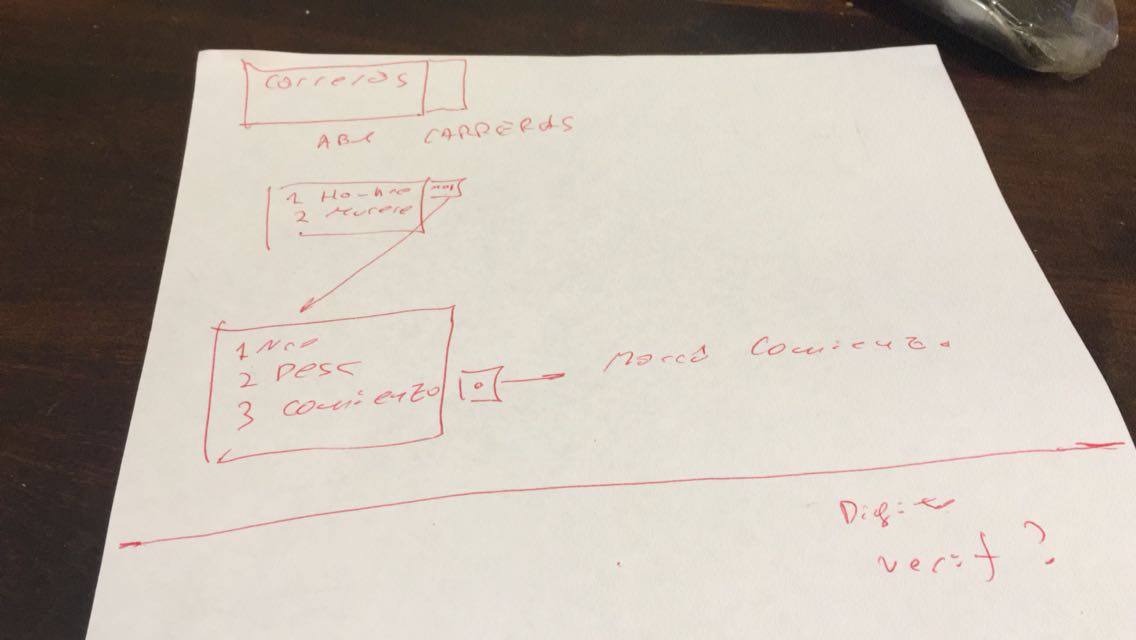 Carreras
ABM CARRERAS
1 Hombre
2 Mujeres
1 Nro
2 Desc
3 Comienzo
Marcó Comienzo.
Digito
verif?